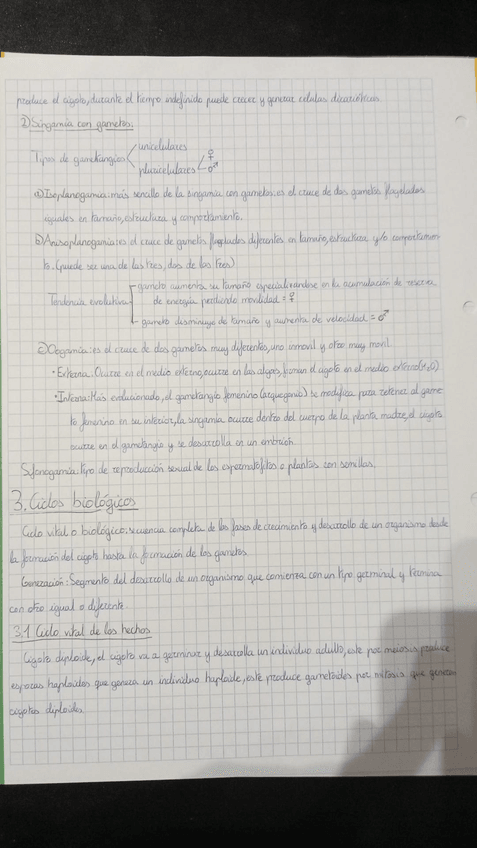 produce el cigoto, durante el tiempo indefinido puede crecer y generar celulas dicarióticas.
2) Singamia con gametos:
Tipos de gametangios < unicelulares
pluricelulares < ♀ ♂
a) Isoplanogamia: más sencillo de la singamia con gametos: es el cruce de dos gametos flagelados
iguales en tamaño, estructura y comportamiento.
b) Anisoplanogamia: es el cruce de gametos flagelados diferentes en tamaño, estructura y/o comportamien
to. (puede ser una de las tres, dos de las tres)
Tendencia evolutiva gameto aumenta su tamaño especializándose en la acumulacion de reserva
de energía perdiendo movilidad = ♀
gameto disminuye de tamaño y aumenta de velocidad = ♂
c) Oogamia: es el cruce de dos gametos muy diferentes, uno inmovil y otro muy movil.
• Externa: Ocurre en el medio externo, ocurre en las algas, forman el cigoto en el medio externo (H2O)
• Interna: Más evolucionado, el gametangio femenino (arquegonio) se modifica para retener al game
to femenino en su interior, la singamia ocurre dentro del cuerpo de la planta madre, el cigoto
ocurre en el gametangio y se desarrolla en un embrión.
Sifonogamia: tipo de reproducción sexual de los espermatofitos o plantas con semillas.
3. Ciclos biológicos
Ciclo vital o biológico: secuencia completa de las fases de crecimiento y desarrollo de un organismo desde
la formación del cigoto hasta la formación de los gametos.
Generación: Segmento del desarrollo de un organismo que comienza con un tipo germinal y termina
con otro igual o diferente.
3.1 Ciclo vital de los
Cigoto diploide, el cigoto va a germinar y desarrolla un individuo adulto, este por meiosis produce
esporas haploides que genera un individuo haploide, este produce por mitosis que generan
cigotos diploides.